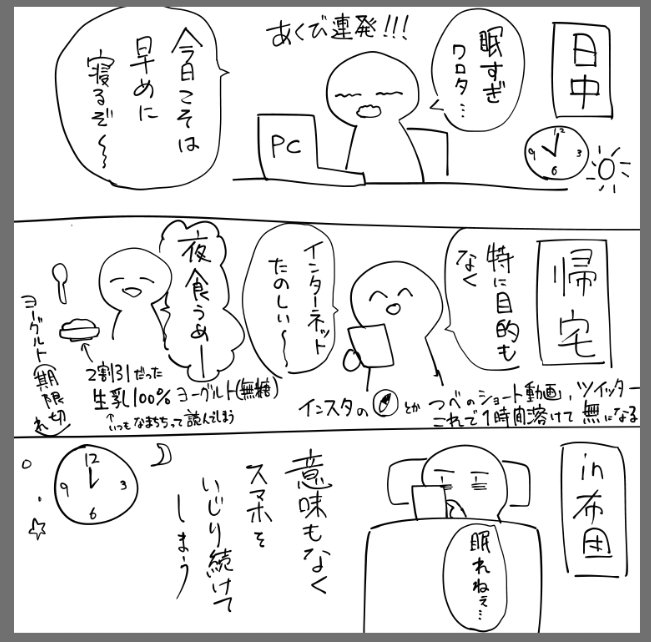 日中
眠すぎ
ワロタ…
あくび連発!!!
今日こそは
早めに
寝るぞ〜〜
PC
12
3
6
9
帰宅
特に目的も
なく
インターネット
たのしい〜〜
インスタの
とか
つべのショート動画、ツイッター
これで1時間溶けて無になる
夜食うめー
2割引だった
生乳100%ヨーグルト(無糖)
↑いつもなまちちって読んでしまう
ヨーグルト(期限切れ)
in布団
眠れねぇ…
意味もなく
スマホを
いじり続けて
しまう
12
3
6
9